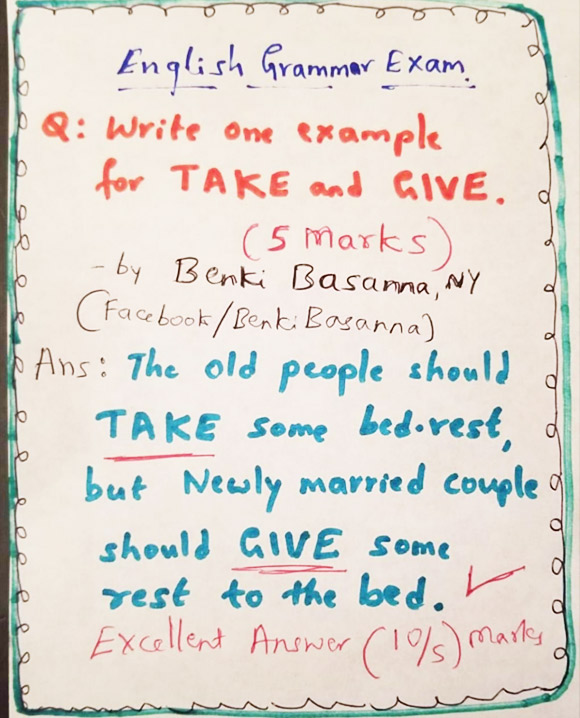 English Grammar Exam.
Q: Write one example
for TAKE and GIVE.
(5 Marks)
- by Benki Basanna, NY
(Facebook/Benki Basanna)
Ans: The old people should
TAKE some bed-rest,
but Newly married couple
should GIVE some
rest to the bed. ✓
Excellent Answer (10/5) marks